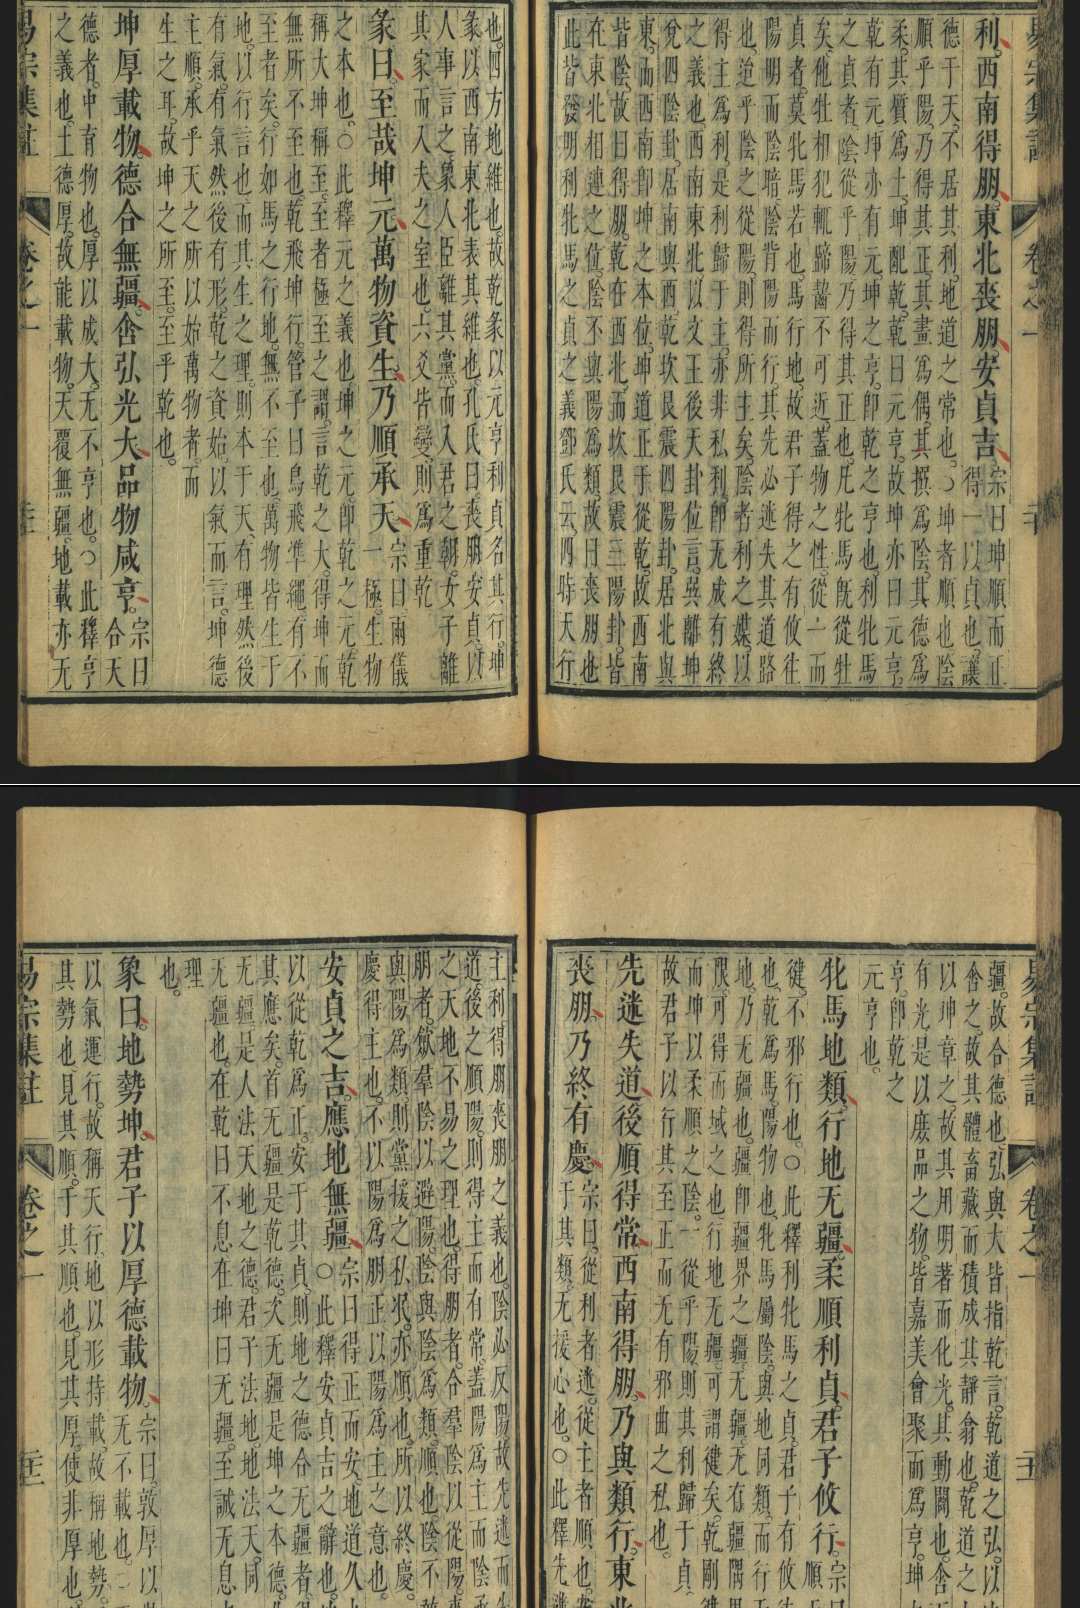 易宗集註 卷之一
利西南得朋東北喪朋安貞吉宗曰坤順而正
得一以貞也讓
德于天不居其利地道之常也○坤者順也陰
順乎陽乃得其正其畫爲偶其撰爲陰其德爲
柔其質爲土坤配乾乾曰元亨故坤亦曰元亨
乾有元坤亦有元坤之亨卽乾之亨也利牝馬
之貞者陰從乎陽乃得其正也凡牝馬旣從牡
矣他牡相犯輒蹄齧不可近蓋物之性從一而
貞者莫牝馬若也馬行地故君子得之有攸往
陽明而陰暗陰背陽而行其先必迷失其道路
也道乎陰之從陽則得所主矣陰者利之媒以
得主爲利是利歸于主亦非私利卽无成有終
之義也西南東北以文王後天卦位言巽離坤
兌四陰卦居南與西乾坎艮震四陽卦居北與
東而西南卽坤之本位坤道正于從乾故西南
皆陰故曰得朋乾在西北而坎艮震三陽卦皆
在東北相連之位陰不與陽爲類故曰喪朋也
此皆發明利牝馬之貞之義鄧氏云四時天行
也四方地維也故乾彖以元亨利貞名其行坤
彖以西南東北表其維也孔氏曰喪朋安貞以
人事言之象人臣離其黨而入君之朝女子離
其家而入夫之室也六爻皆變則爲重乾
彖曰至哉坤元萬物資生乃順承天宗曰兩儀
一極生物
之本也○此釋元之義也坤之元卽乾之元乾
稱大坤稱至至者極至之謂言乾之大得坤而
無所不至也乾飛坤行管子曰鳥飛準繩有不
至者矣行如馬之行地無不至也萬物皆生于
地以行言也而其生之理則本于天有理然後
有氣有氣然後有形乾之資始以氣而言坤德
主順承乎天之所以始萬物者而
生之耳故坤之所至至乎乾也
坤厚載物德合無疆含弘光大品物咸亨宗曰
合天
德者中育物也厚以成大无不亨也○此釋亨
之義也土德厚故能載物天覆無疆地載亦无
易宗集註 卷之一
易宗集註 卷之一
疆故合德也弘與大皆指乾言乾道之弘以
含之故其體畜藏而積成其靜翕也乾道之
以坤章之故其用明著而化光其動闢也含
有光是以庶品之物皆嘉美會聚而爲亨坤
亨卽乾之
元亨也
牝馬地類行地无疆柔順利貞君子攸行宗曰
順
健不邪行也○此釋利牝馬之貞君子有攸往
也乾爲馬陽物也牝馬屬陰與地同類而行
地乃无疆也疆卽疆界之疆无疆无有疆
限可得而域之也行地无疆可謂健矣乾剛
而坤以柔順之陰一從乎陽則其利歸于貞
故君子以行其至正而无有邪曲之私也
先迷失道後順得常西南得朋乃與類行東北
喪朋乃終有慶宗曰從利者迷從主者順也
于其類无援心也○此釋先迷
主利得朋喪朋之義也陰必反陽故先迷而
道後之順陽則得主而有常蓋陽爲主而陰
之天地不易之理也得朋者合羣陰以從陽
朋者斂羣陰以避陽陰與陰爲類順也陰不
與陽爲類則黨援之私泯亦順也所以終慶
慶得主也不以陽爲朋正以陽爲主之意也
安貞之吉應地無疆宗曰得正而安地道久
○此釋安貞吉之辭也
以從乾爲正安于其貞則地之德合无疆者
其應矣首无疆是乾德次无疆是坤之本德
无疆是人法天地之德君子法地地法天同
无疆也在乾曰不息在坤曰无疆至誠无息
理
也
象曰地勢坤君子以厚德載物宗曰敦厚以
无不載也
以氣運行故稱天行地以形持載故稱地勢
其勢也見其順于其順也見其厚使非厚也
易宗集註 卷之一